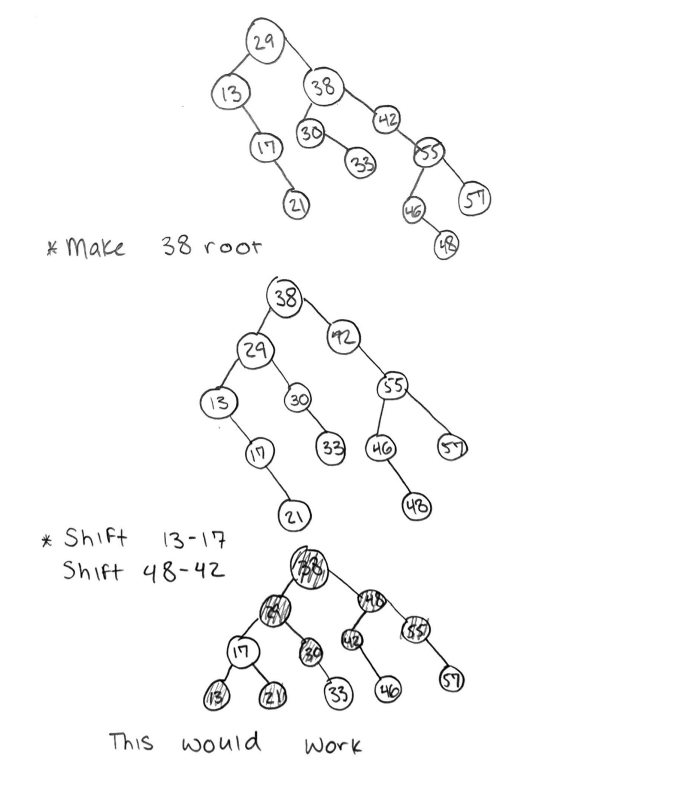 29
13 38
30 42
17 33 55
21 46 57
48
* Make 38 root
38
29 42
13 30 55
17 33 46 57
21 48
* Shift 13-17
Shift 48-42
38
29 48
17 30 42 55
13 21 33 46 57
This would work